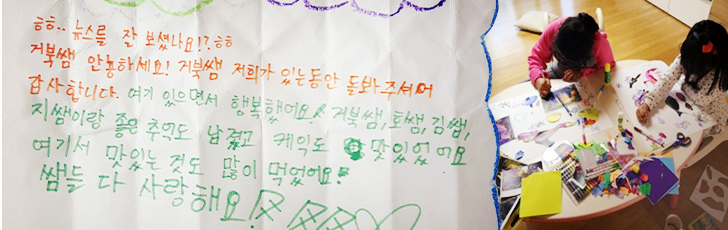 ㅎㅎ.. 뉴스를 잘 보셨나요!?.ㅎㅎ
거북쌤 안뇽하세요! 거북쌤 저희가 있는동안 돌봐주셔서
감사합니다. 여기 있으면서 행복했어요! 거북쌤, 회쌤, 김쌤,
지쌤이랑 좋은 추억도 남겼고 케익도 맛있었어요
여기서 맛있는 것도 많이 먹었어요!
쌤들 다 사랑해요!